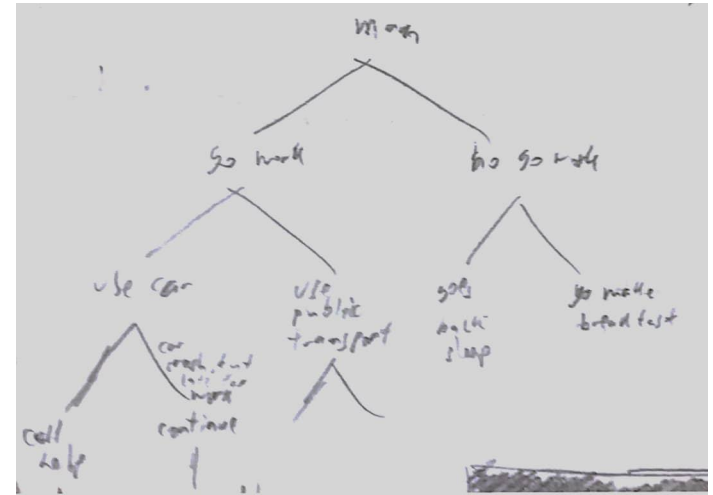 man
go work
no go work
use car
use
public
transport
goes
back
sleep
go make
breakfast
car
crash, but
late for
work
continue
call
help